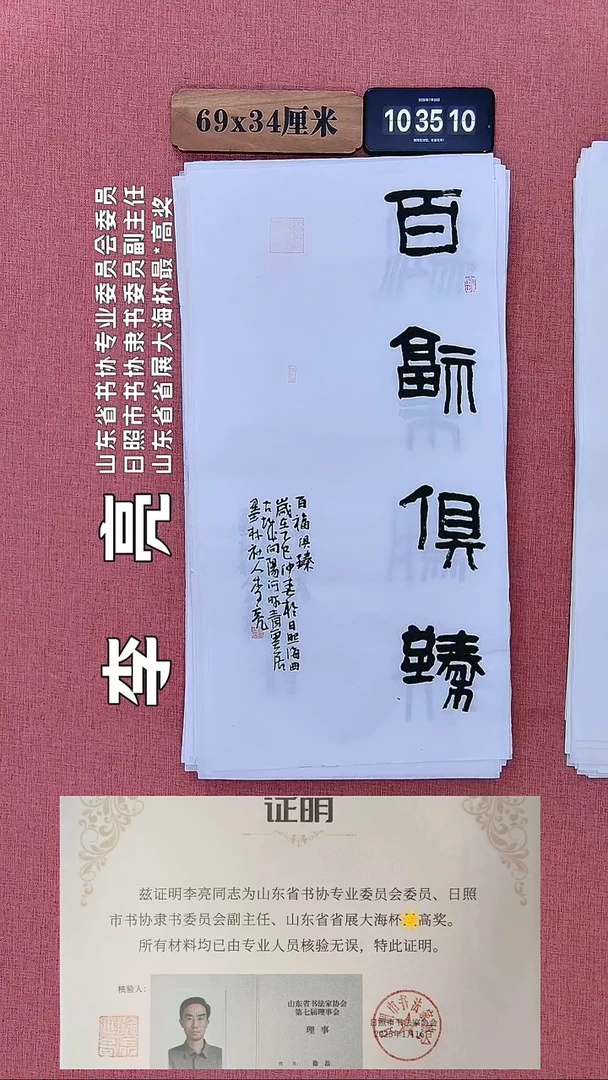 69x34厘米
10 35 10
山东省书协专业委员会委员
日照市书协隶书委员副主任
山东省省展大海杯最*高奖
李亮
百福俱臻
百福俱臻
岁在乙巳仲春於日照海曲
古城向阳河畔青墨居
墨林社人李亮
证明
兹证明李亮同志为山东省书协专业委员会委员、日照
市书协隶书委员会副主任、山东省省展大海杯高奖。
所有材料均已由专业人员核验无误，特此证明。
核验人：
山东省书法家协会
第七届理事会
理事
姓名 徐磊
日照市书法家协会
2025年1月16日